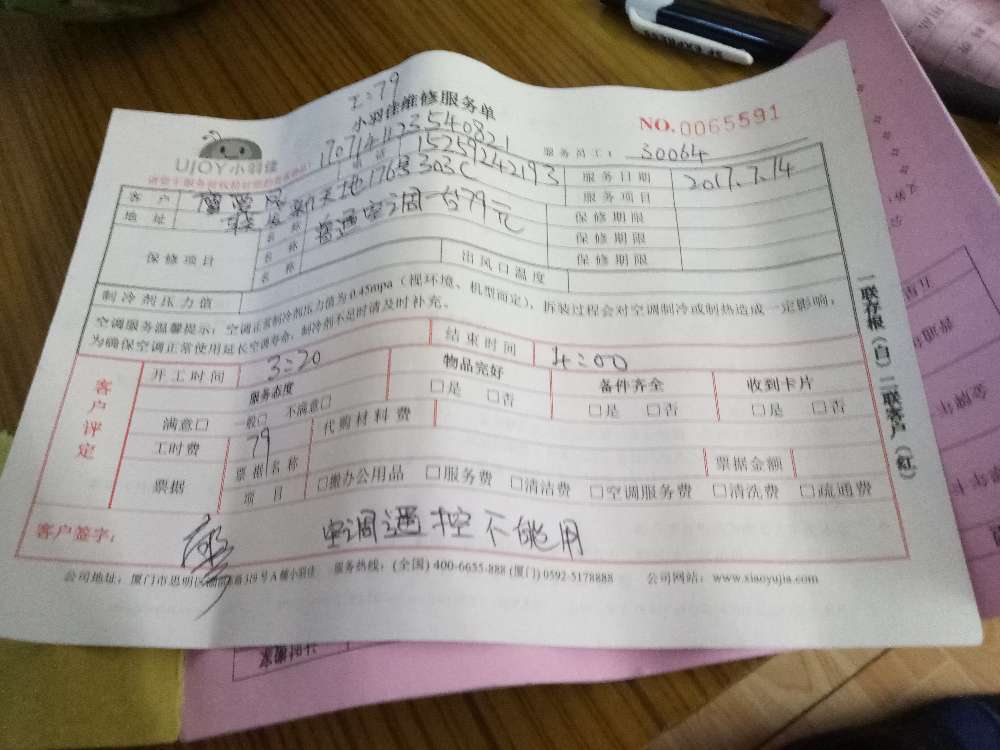 工:79
小羽佳维修服务单
NO.0065591
UJOY小羽佳
170714123540821
服务员工: S0064
电话 15259242193
服务日期 2017.7.14
客户
服务项目
地址 新天地176号303C
保修期限
保修项目 名称 普通空调一台79元
名称 保修期限
名称 保修期限
制冷剂压力值
出风口温度
空调服务温馨提示:空调正常制冷剂压力值为0.45mpa(视环境、机型而定),拆装过程会对空调制冷或制热造成一定影响,
为确保空调正常使用延长空调寿命,制冷剂不足时请及时补充。
客户评定
开工时间 3:20 结束时间 4:00
服务态度 物品完好 备件齐全 收到卡片
满意□ 一般□ 不满意□ □是 □否 □是 □否 □是 □否
工时费 79 代购材料费
票据 票据名称 票据金额
项目 □搬办公用品 □服务费 □清洁费 □空调服务费 □清洗费 □疏通费
客户签字: 空调遥控不能用
公司地址:厦门市思明区 319号A幢小羽佳 服务热线:(全国)400-6655-888(厦门)0592-5178888 公司网站:www.xiaoyujia.com
一联存根(白)二联客户(红)